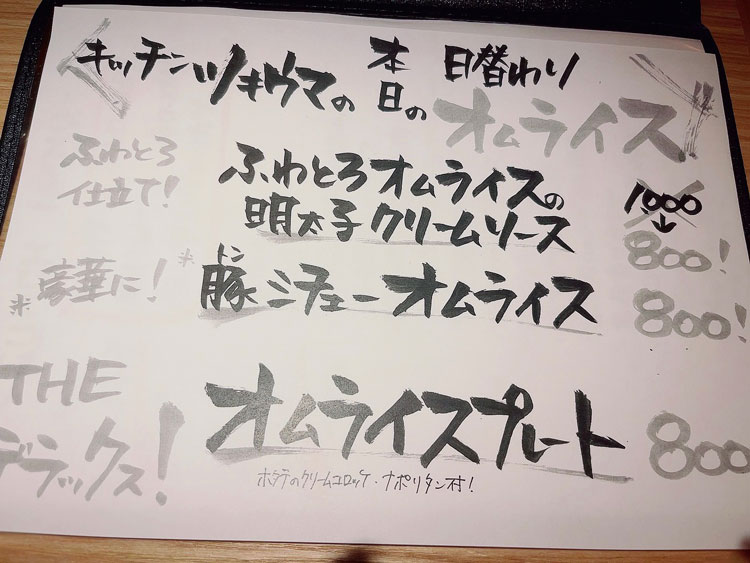 キッチンツキウマの本日の日替わり
オムライス!
ふわとろ仕立て!
ふわとろオムライスの
明太子クリームソース
1000
↓
800!
※豪華に!※
豚ミチューオムライス
800!
THE
デラックス!
オムライスプレート
800
ホタテのクリームコロッケ・ナポリタン付!